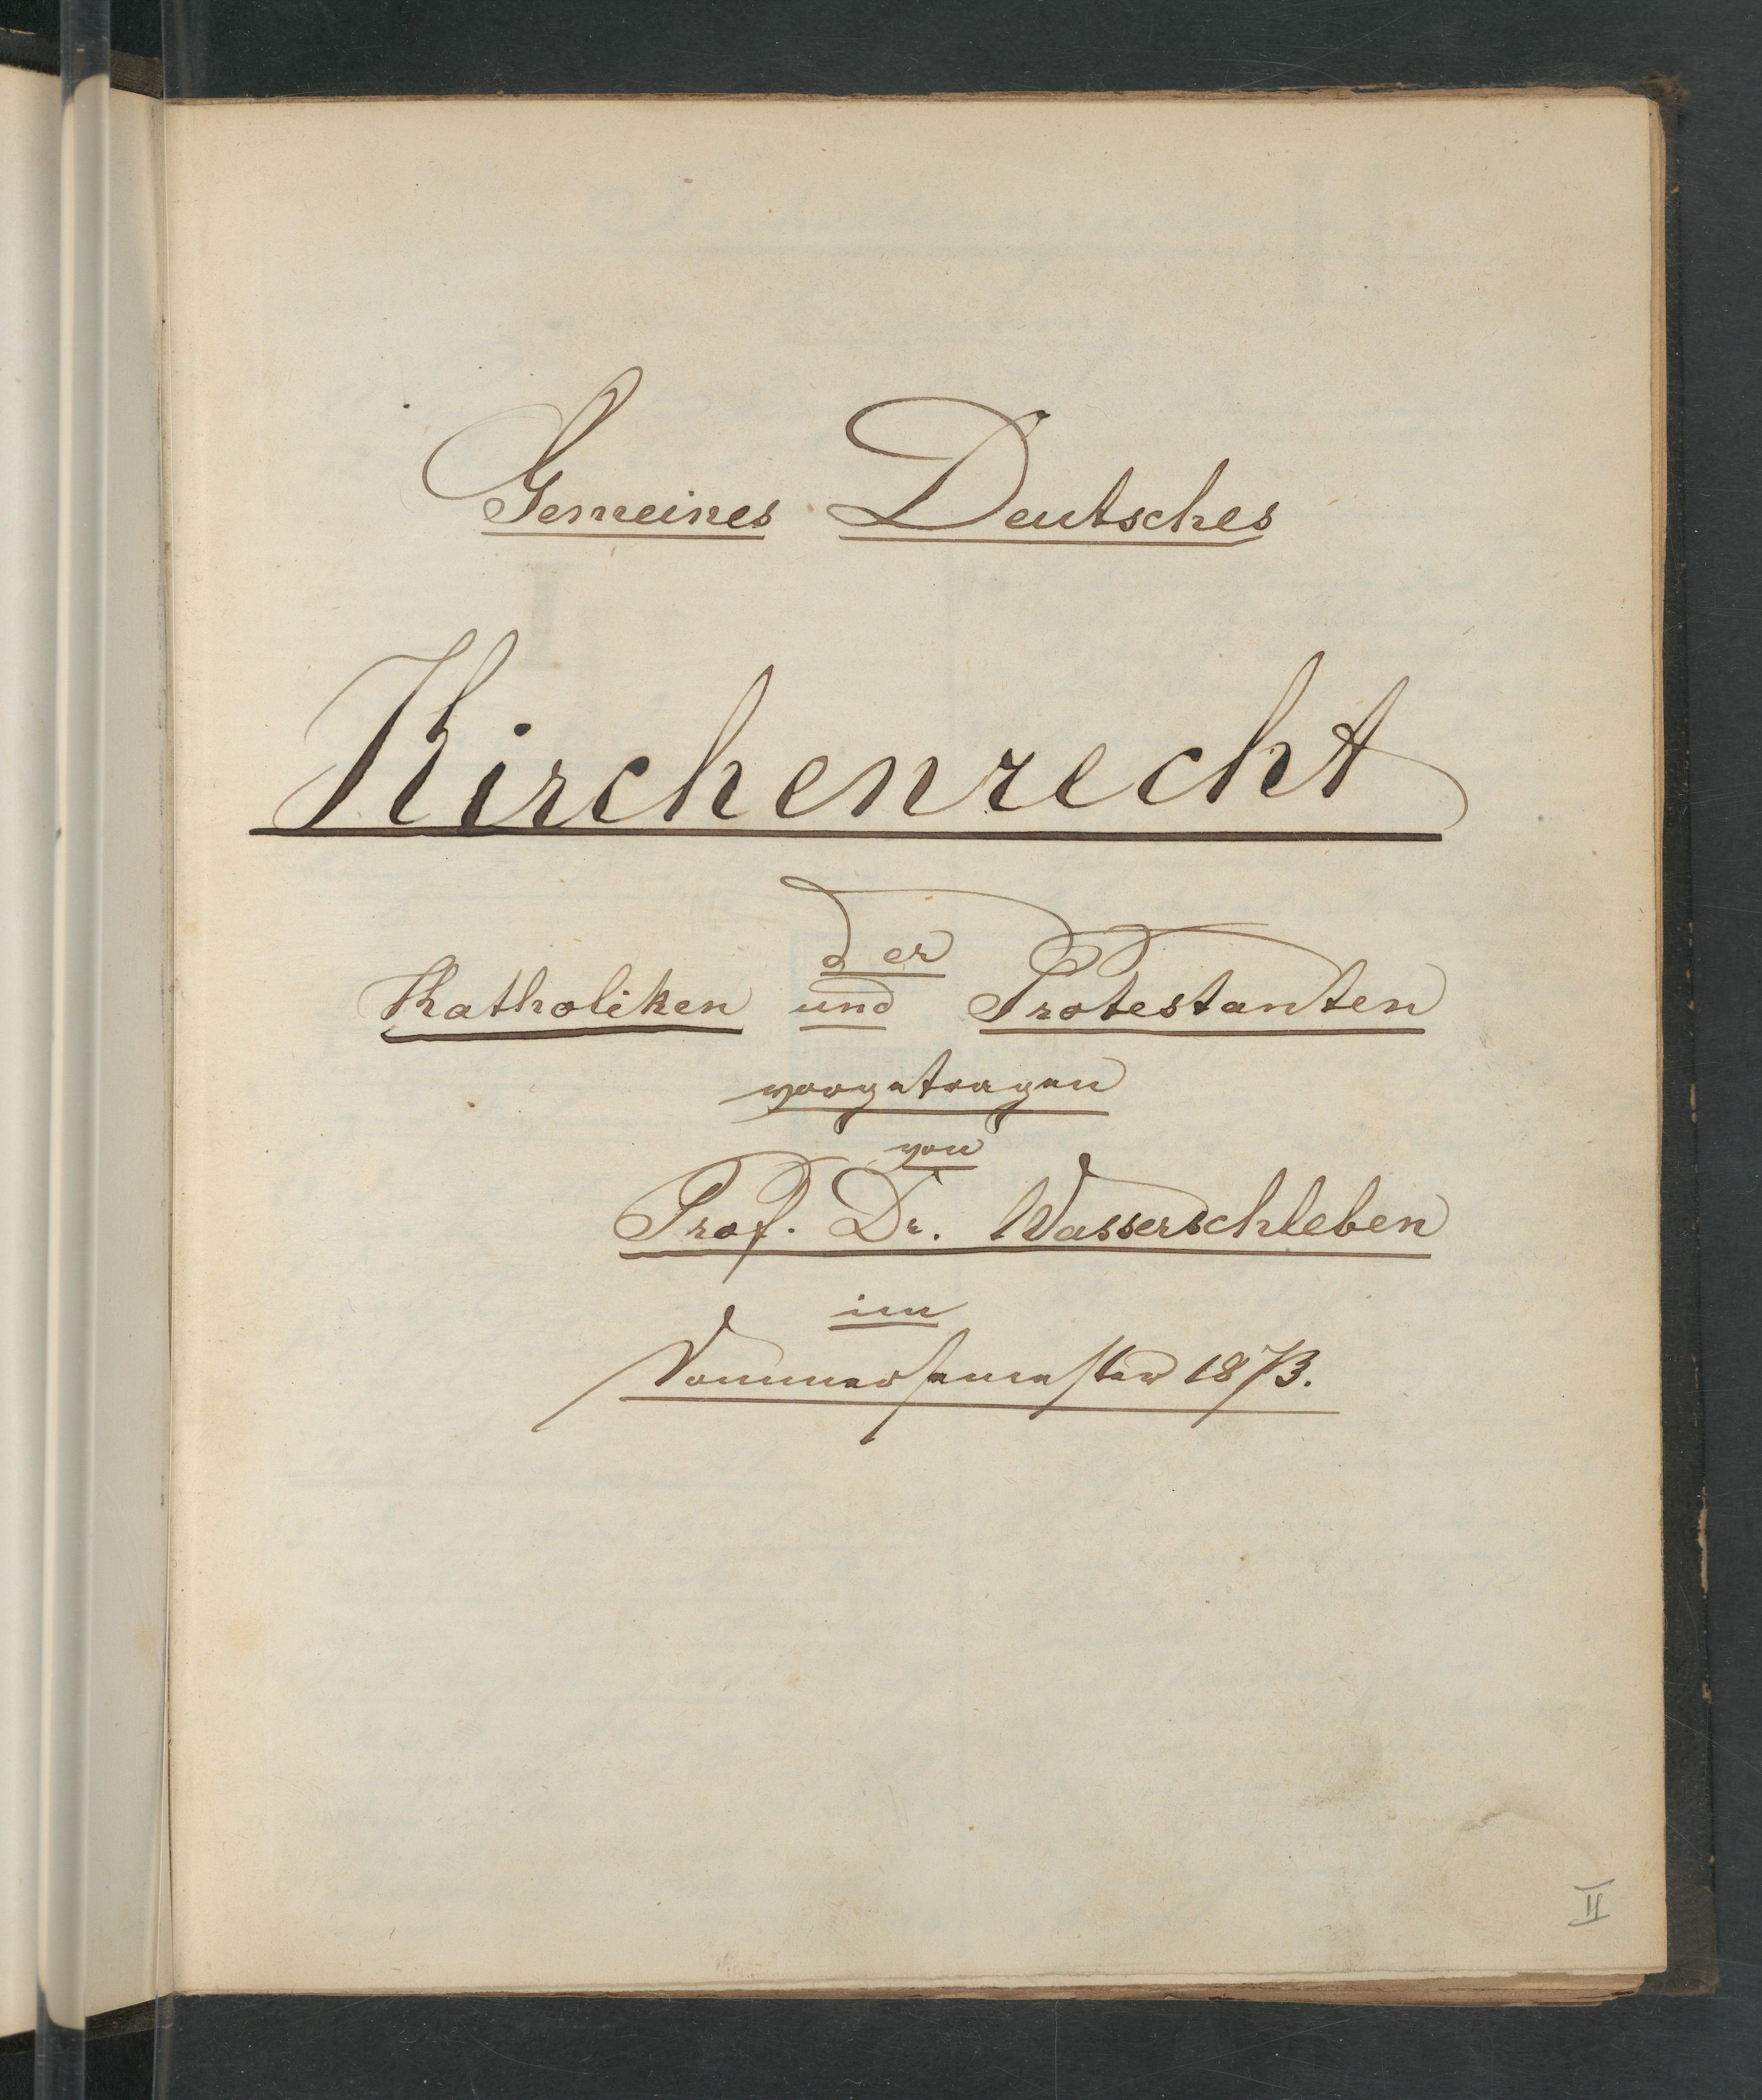 Gemeines Deutsches
Kirchenrecht
der
Katholiken und Protestanten
vorgetragen
von
Prof. Dr. Wasserschleben
im
Sommersemester 1873.
II